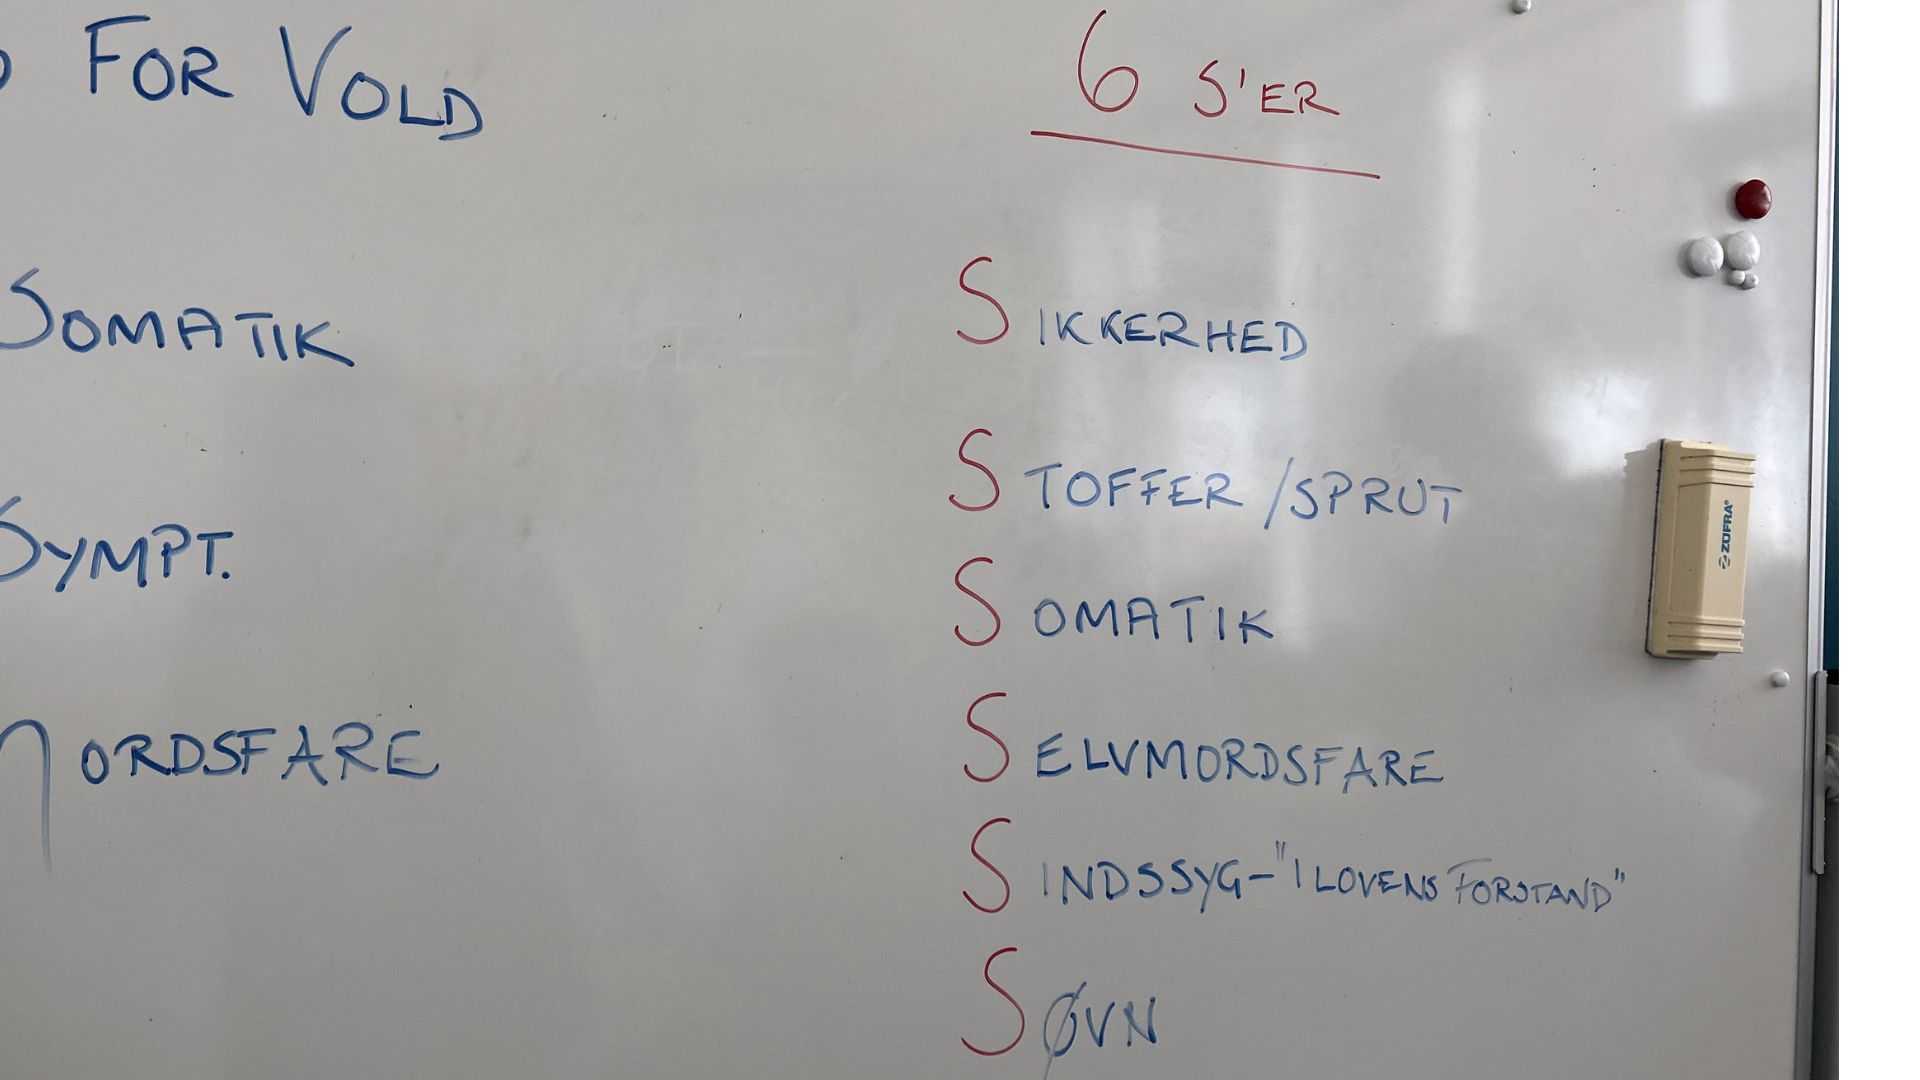 FOR VOLD
SOMATIK
SYMPT.
MORDSFARE
6 S'ER
SIKKERHED
STOFFER/SPRUT
SOMATIK
SELVMORDSFARE
SINDSSYG-"I LOVENS FORSTAND"
SØVN
ZÜFRA